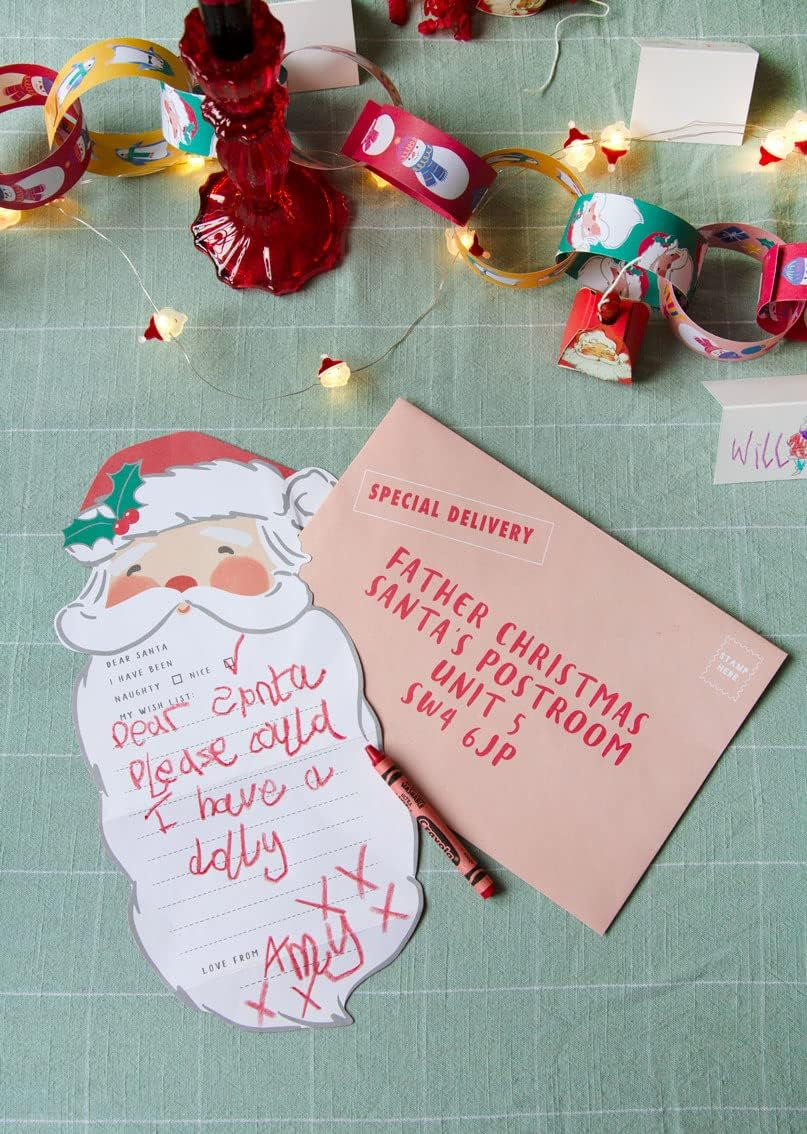 WILL
SPECIAL DELIVERY
FATHER CHRISTMAS
SANTA'S POSTROOM
UNIT 5
SW4 6JP
STAMP
HERE
DEAR SANTA
I HAVE BEEN
NAUGHTY NICE
MY WISH LIST:
Dear Santa
Please could
I have a
dolly
LOVE FROM Amy
X X X
X X
Crayola
WASHABLE